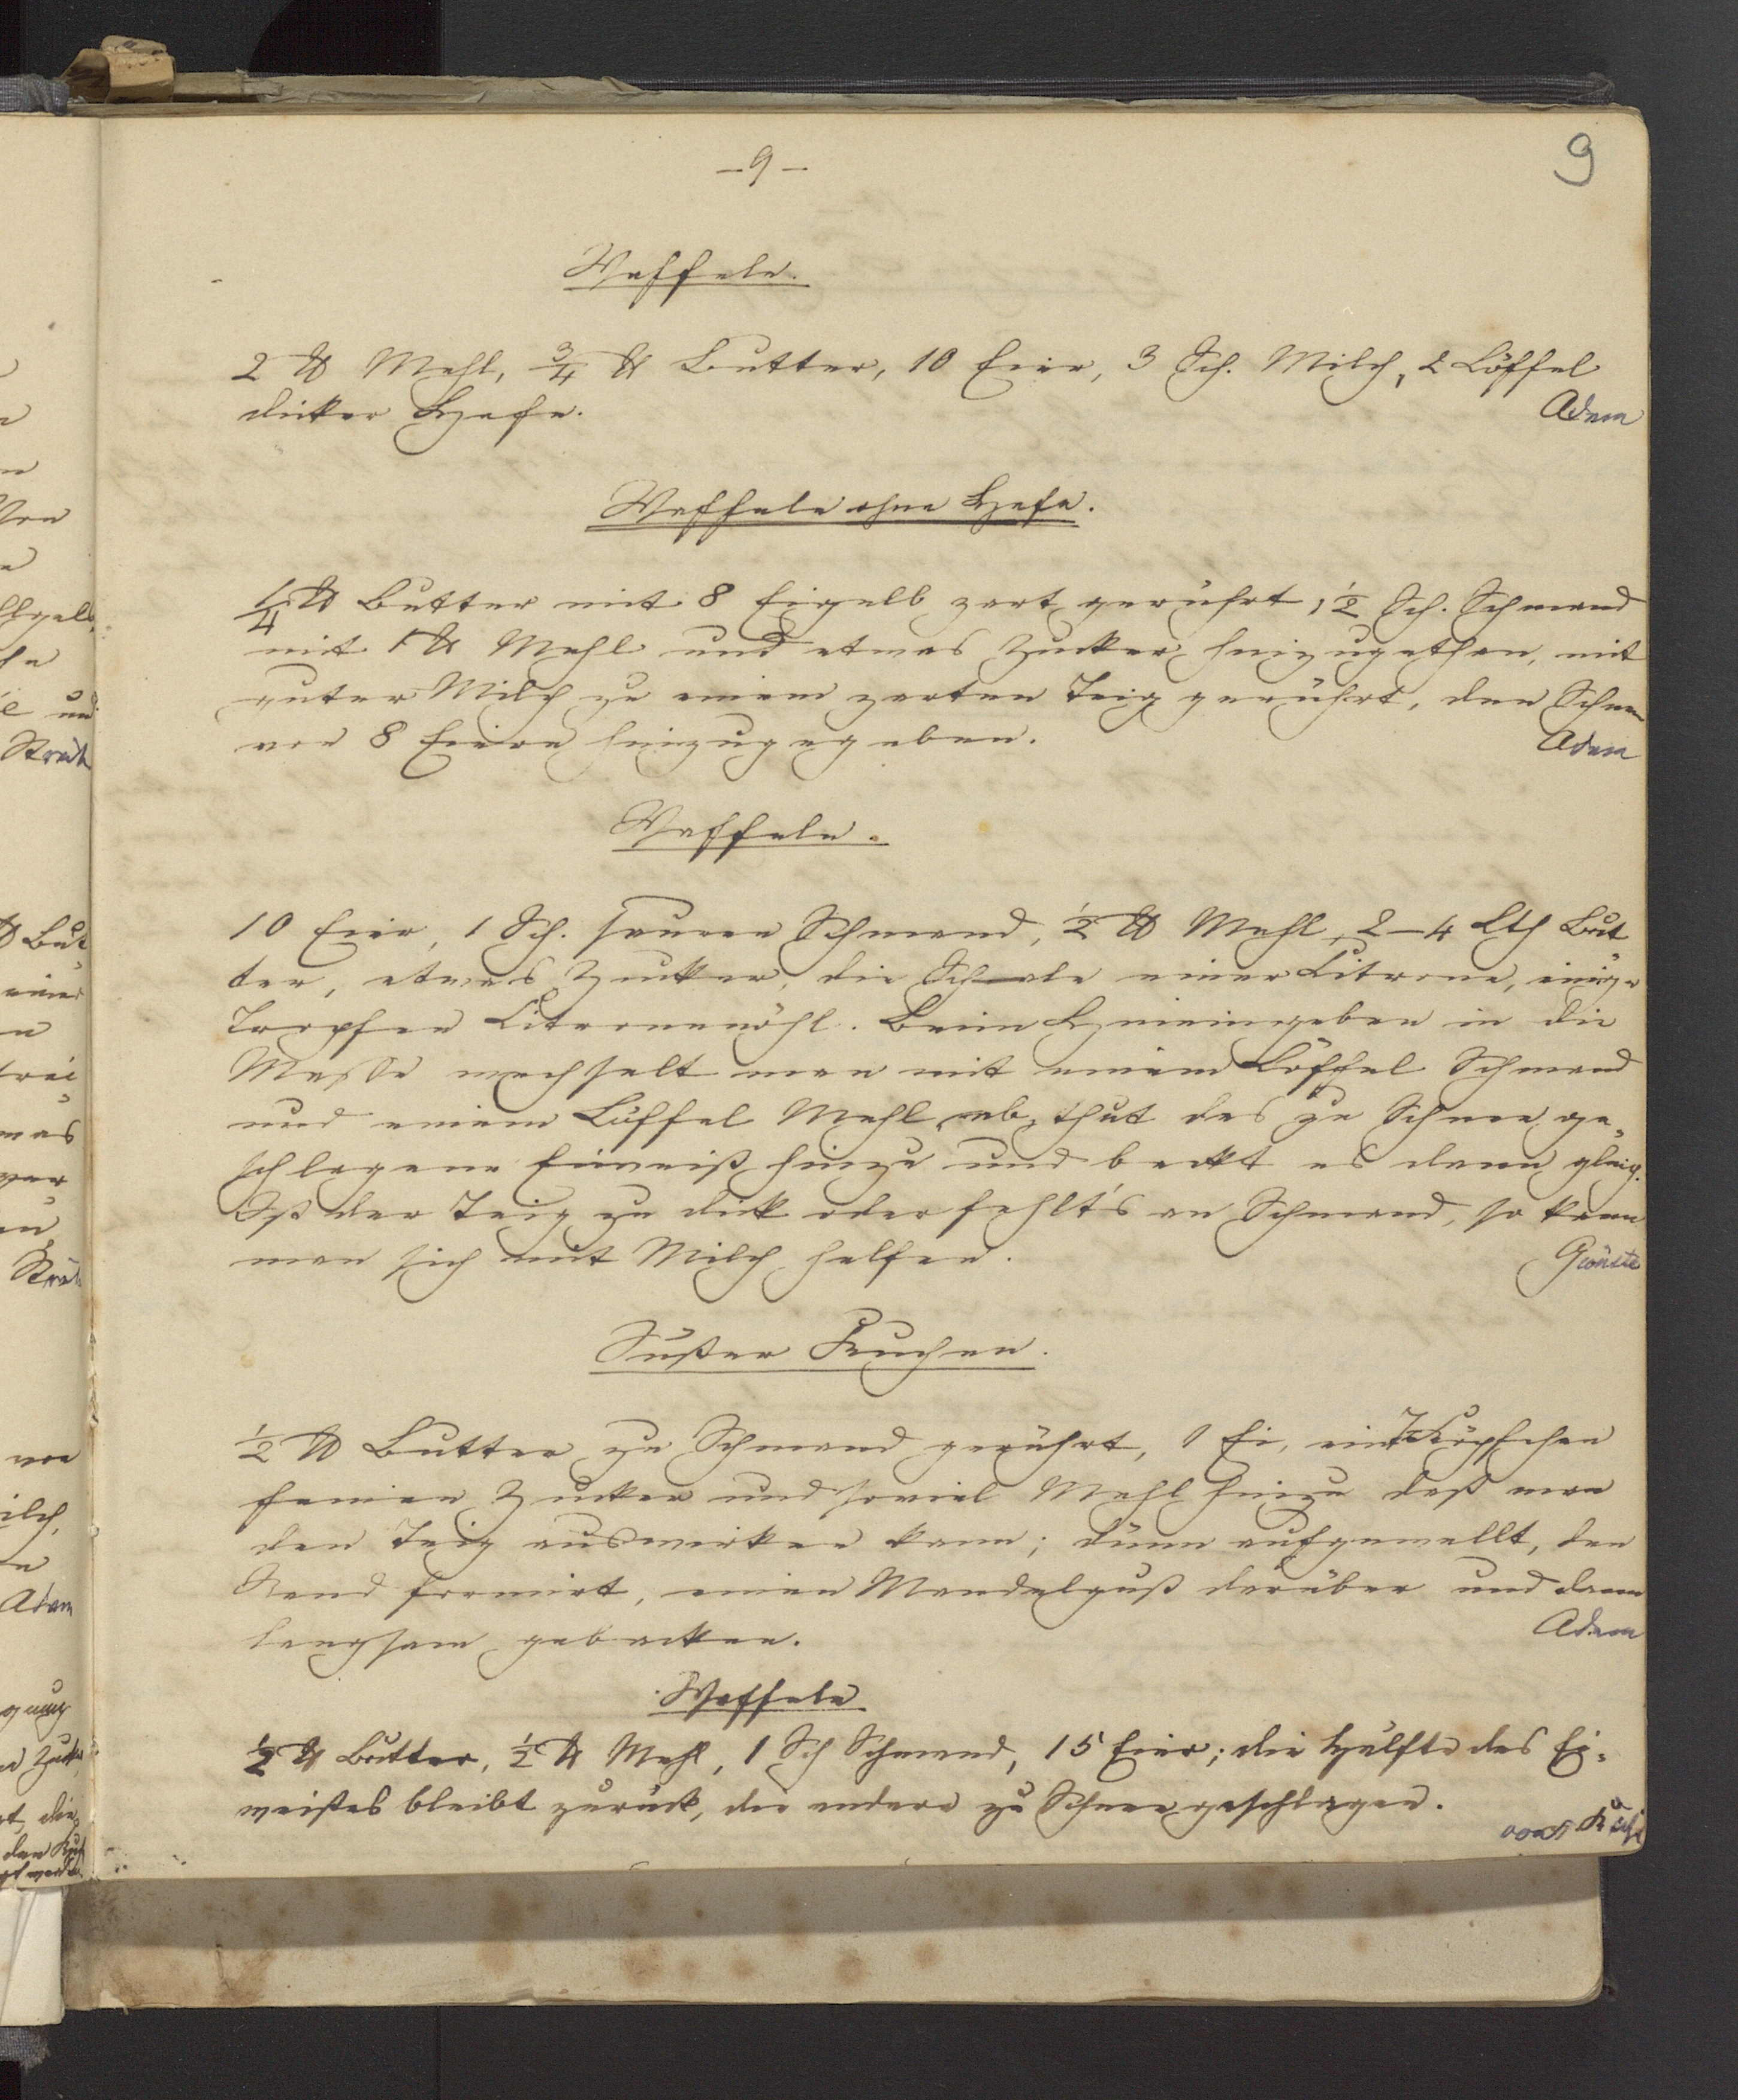 - 9 -
9
Waffeln.
2 ℔ Mehl, 3/4 ℔ Butter, 10 Eier, 3 Sch. Milch, 2 Löffel
dicker Hefe.
Adam
Waffeln ohne Hefe.
1/4 ℔ Butter mit 8 Eigelb zart gerührt, 1/2 Sch. Schmand
mit 1 ℔ Mehl und etwas Zucker hinzugethan, mit
guter Milch zu einem zarten Teig gerührt, den Schnee
von 8 Eiern hinzugegeben.
Adam
Waffeln.
10 Eier, 1 Sch. sauren Schmand, 1/2 ℔ Mehl, 2-4 Lth But
ter, etwas Zucker, die Schale einer Citrone, einige
Tropfen Citronenöhl. Beim Hineingeben in die
Masse wechselt man mit einem Löffel Schmand
und einem Löffel Mehl ab, thut das zu Schnee ge=
schlagene Eiweiß hinzu und backt es dann gleich.
Ist der Teig zu dick oder fehlt's an Schmand, so kann
man sich mit Milch helfen.
Süßer Kuchen.
1/2 ℔ Butter zu Schmand gerührt, 1 Ei, ein Köpfchen
feinen Zucker und soviel Mehl hinzu daß man
den Teig auswirken kann; dünn aufgewellt, den
Rand formirt, einen Mandelguß darüber und dann
langsam gebacken.
Adam
Waffeln
1/2 ℔ Butter, 1/2 ℔ Mehl, 1 Sch Schmand, 15 Eier; die Hälfte des Ei=
weißes bleibt zurück, die andere zu Schnee geschlagen.